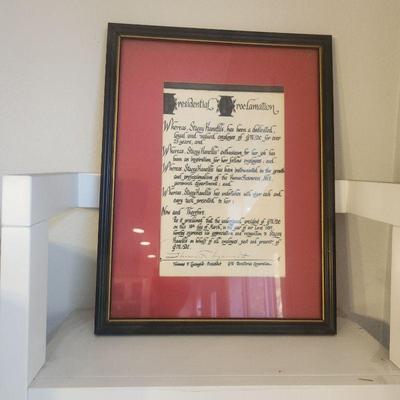 Presidential Proclamation
Whereas, Stacey Kanellis has been a dedicated,
loyal and valued employee of GTE/DC for over
years, and;
Whereas, Stacey Kanellis' enthusiasm for her job has
been an inspiration for her fellow employees; and;
Whereas, Stacey Kanellis has been instrumental in the growth
and professionalism of the Human Resources
personnel department; and;
Whereas, Stacey Kanellis has undertaken with each and
every task presented to her;
Now and Therefore,
Be it proclaimed that the undersigned, president of GTE/DC
on this day of March, in the year of our Lord
hereby expresses his appreciation and recognition to Stacey
Kanellis on behalf of all employees past and present of
GTE/DC.
Thomas F. President GTE Directories Corporation